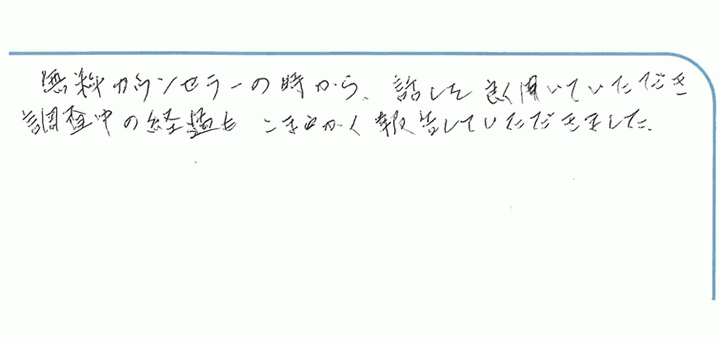 無料カウンセラーの時から、話しを良く聞いていただき
調査中の経過もこまやかく報告していただきました。